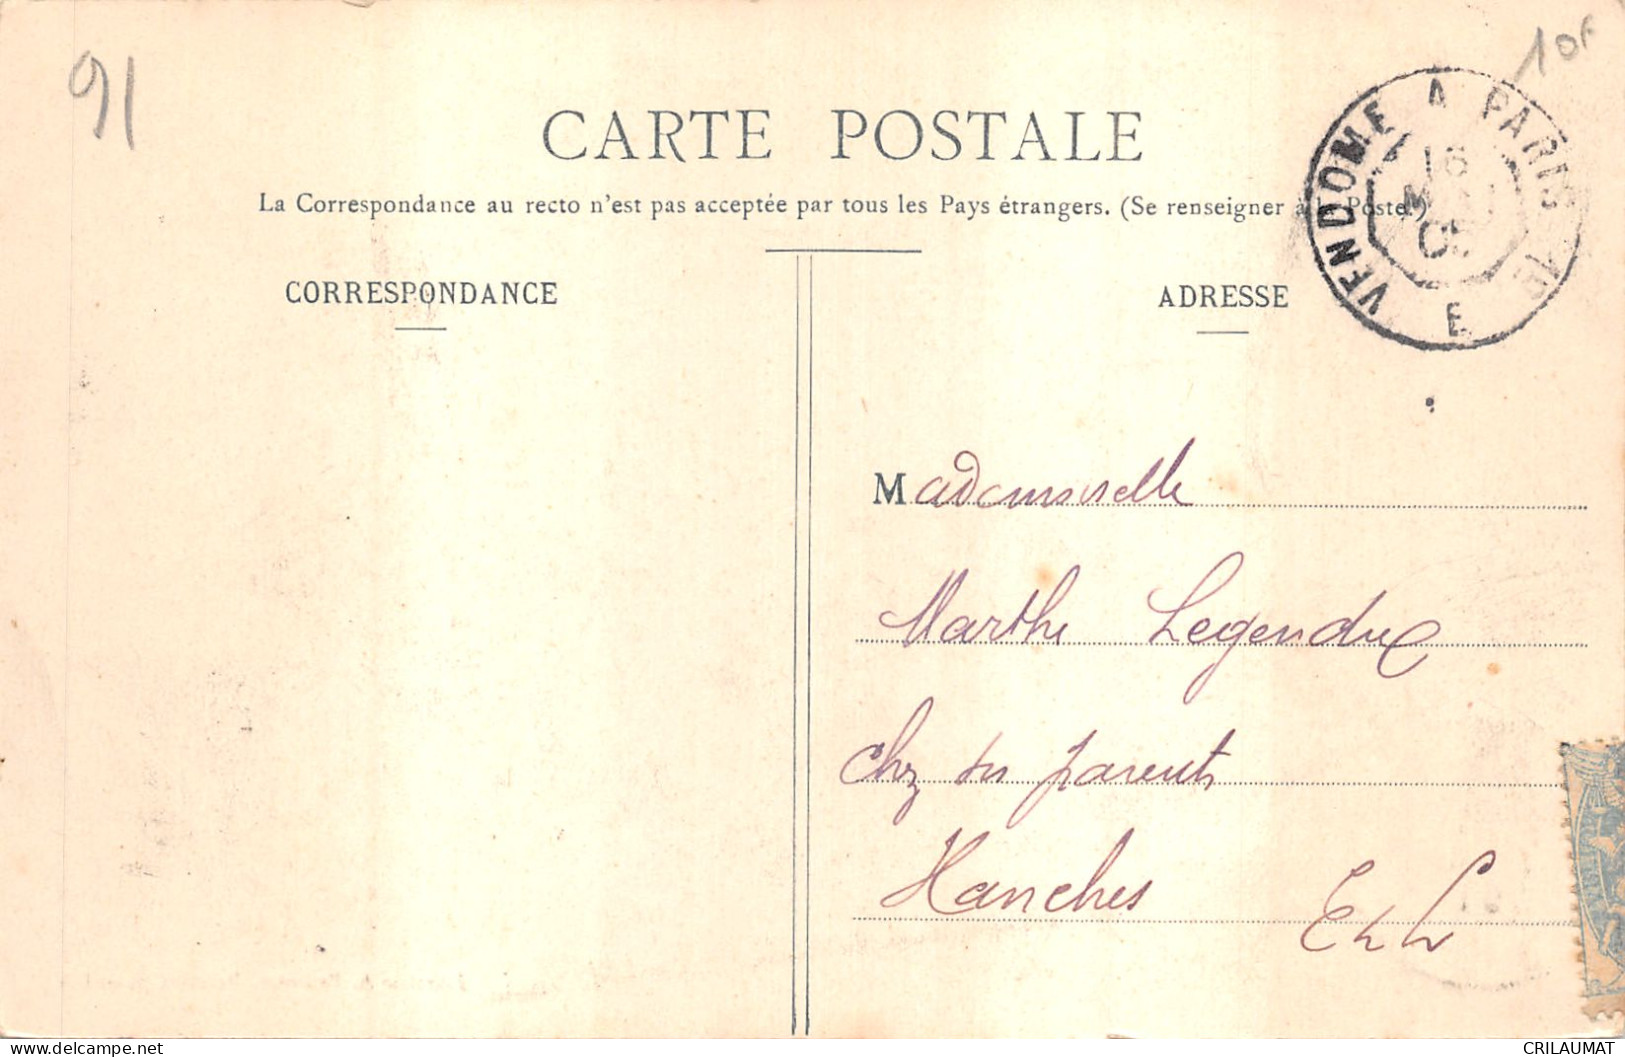 91
10f
CARTE POSTALE
La Correspondance au recto n'est pas acceptée par tous les Pays étrangers. (Se renseigner à la Poste.)
VENDOME A PARIS
16
E
CORRESPONDANCE
ADRESSE
Mademoiselle
Marthe Legendre
Chez ses parents
Hanches E & L
www.delcampe.net
CRILAUMAT